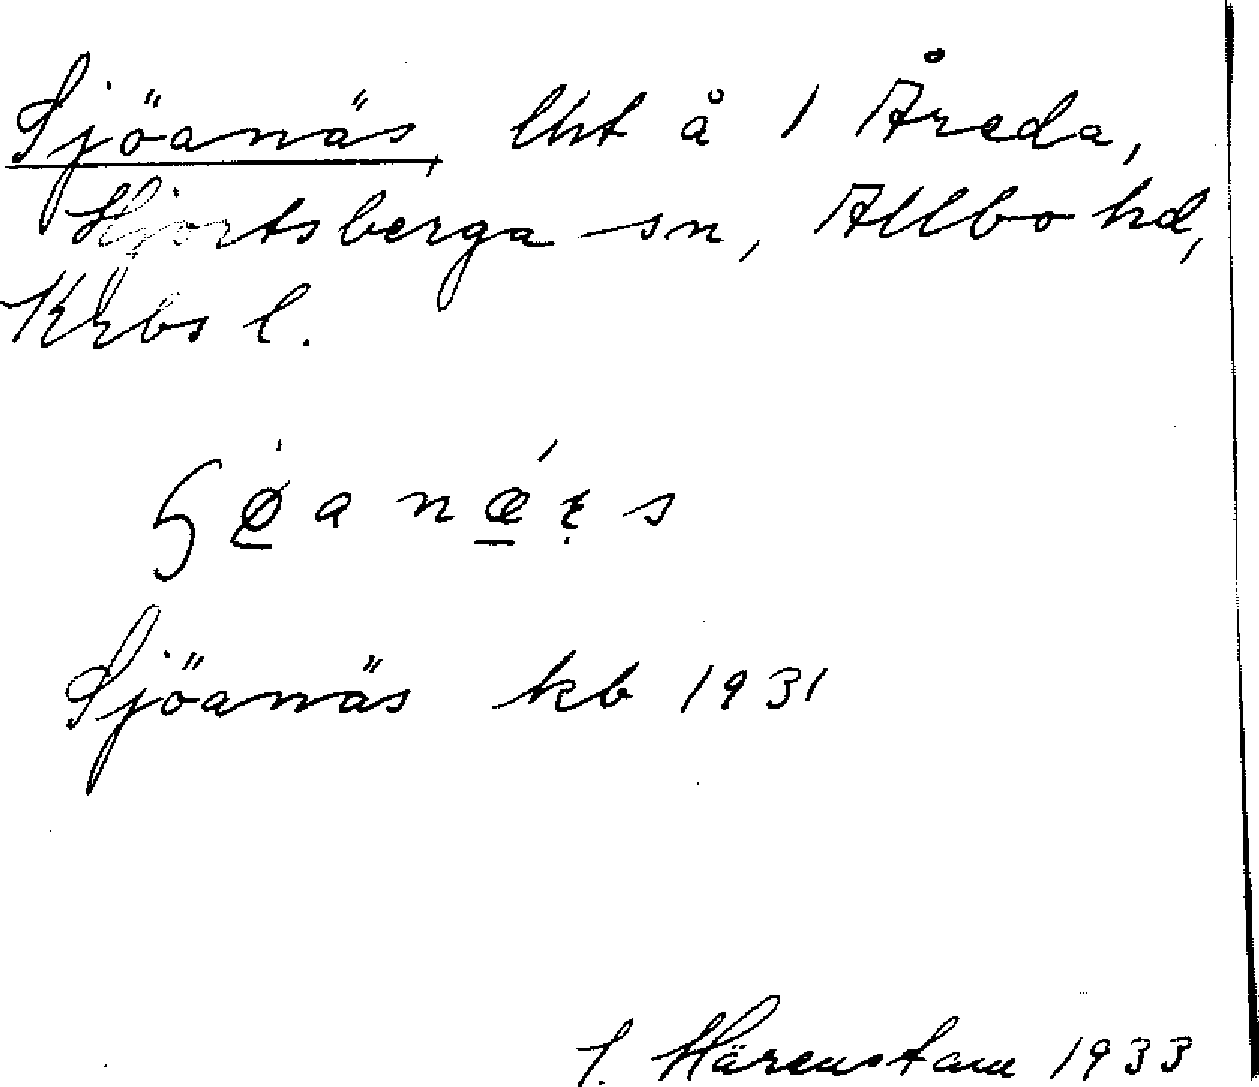 Sjöanäs, lht å 1 Åreda,
Hjortsberga sn, Allbo hd,
Krbs l.
Sjöanäs kb 1931
J. Härenstam 1933